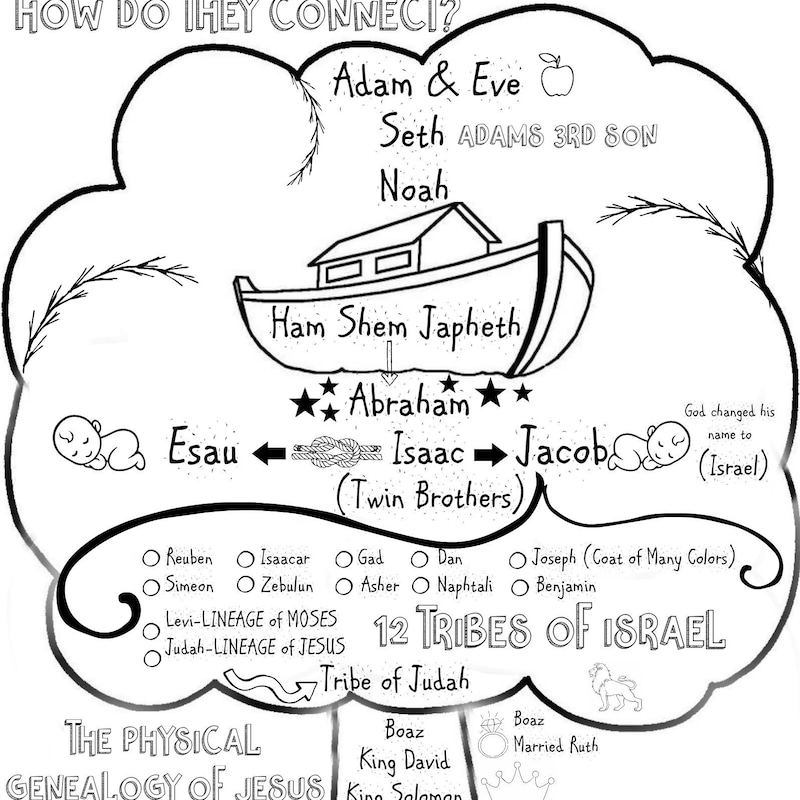 HOW DO THEY CONNECT?
Adam & Eve
Seth ADAMS 3RD SON
Noah
Ham Shem Japheth
Abraham
God changed his
name to
(Israel)
Esau Isaac Jacob
(Twin Brothers)
Reuben Isaacar Gad Dan Joseph (Coat of Many Colors)
Simeon Zebulun Asher Naphtali Benjamin
Levi-LINEAGE of MOSES
Judah-LINEAGE of JESUS
12 TRIBES OF ISRAEL
Tribe of Judah
THE PHYSICAL
GENEALOGY OF JESUS
Boaz
King David
King Solomon
Boaz
Married Ruth